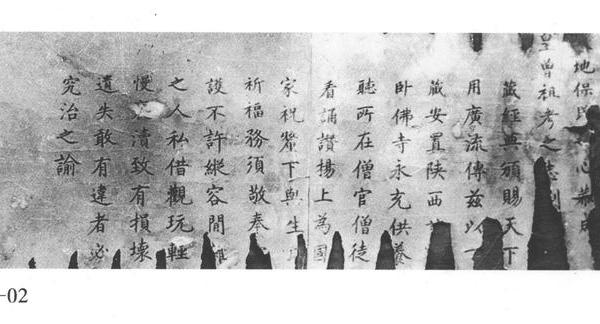 地保民心恭成
皇曾祖考之志刊
藏經典頒賜天下
用廣流傳茲以
藏安置陝西
卧佛寺永充供養
聽所在僧官僧徒
看誦讚揚上為國
家祝釐下與生
祈福務須敬奉
護不許縱容閒雜
之人私借觀玩輕
慢瀆致有損壞
遺失敢有違者必
究治之諭
-02